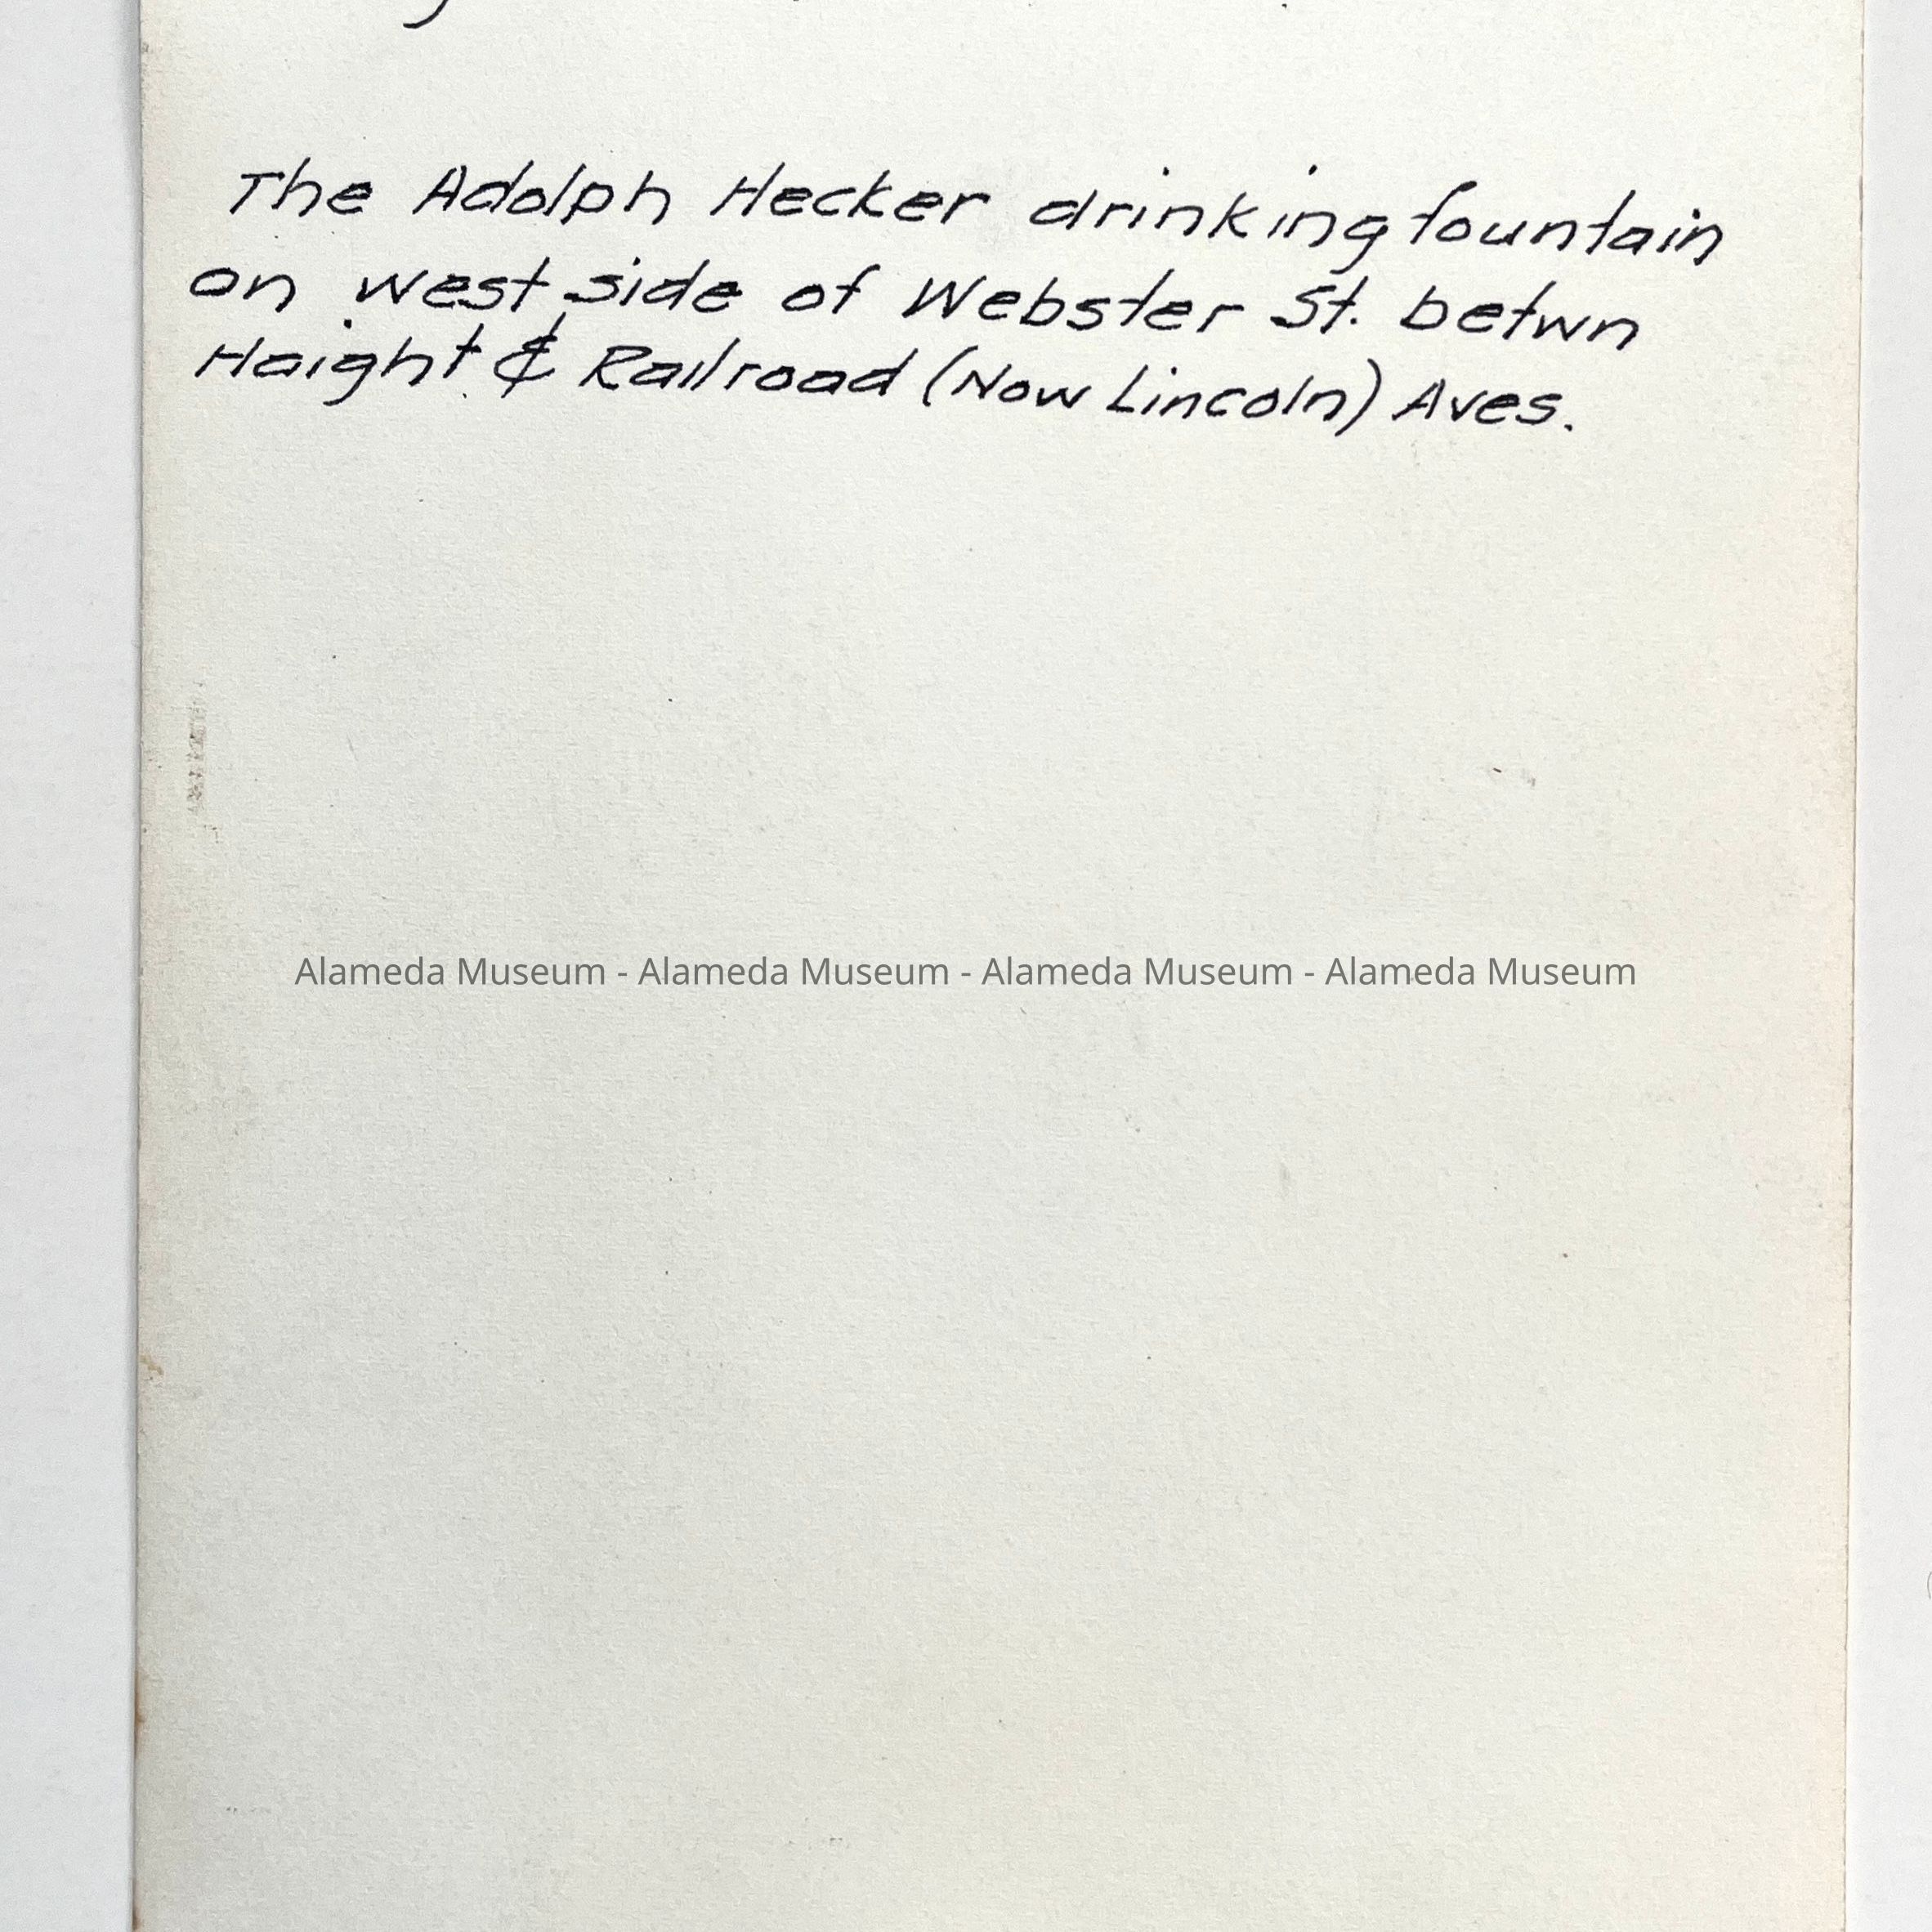 The Adolph Hecker drinking fountain
on west side of Webster St. betwn
Haight & Railroad (Now Lincoln) Aves.
Alameda Museum - Alameda Museum - Alameda Museum - Alameda Museum